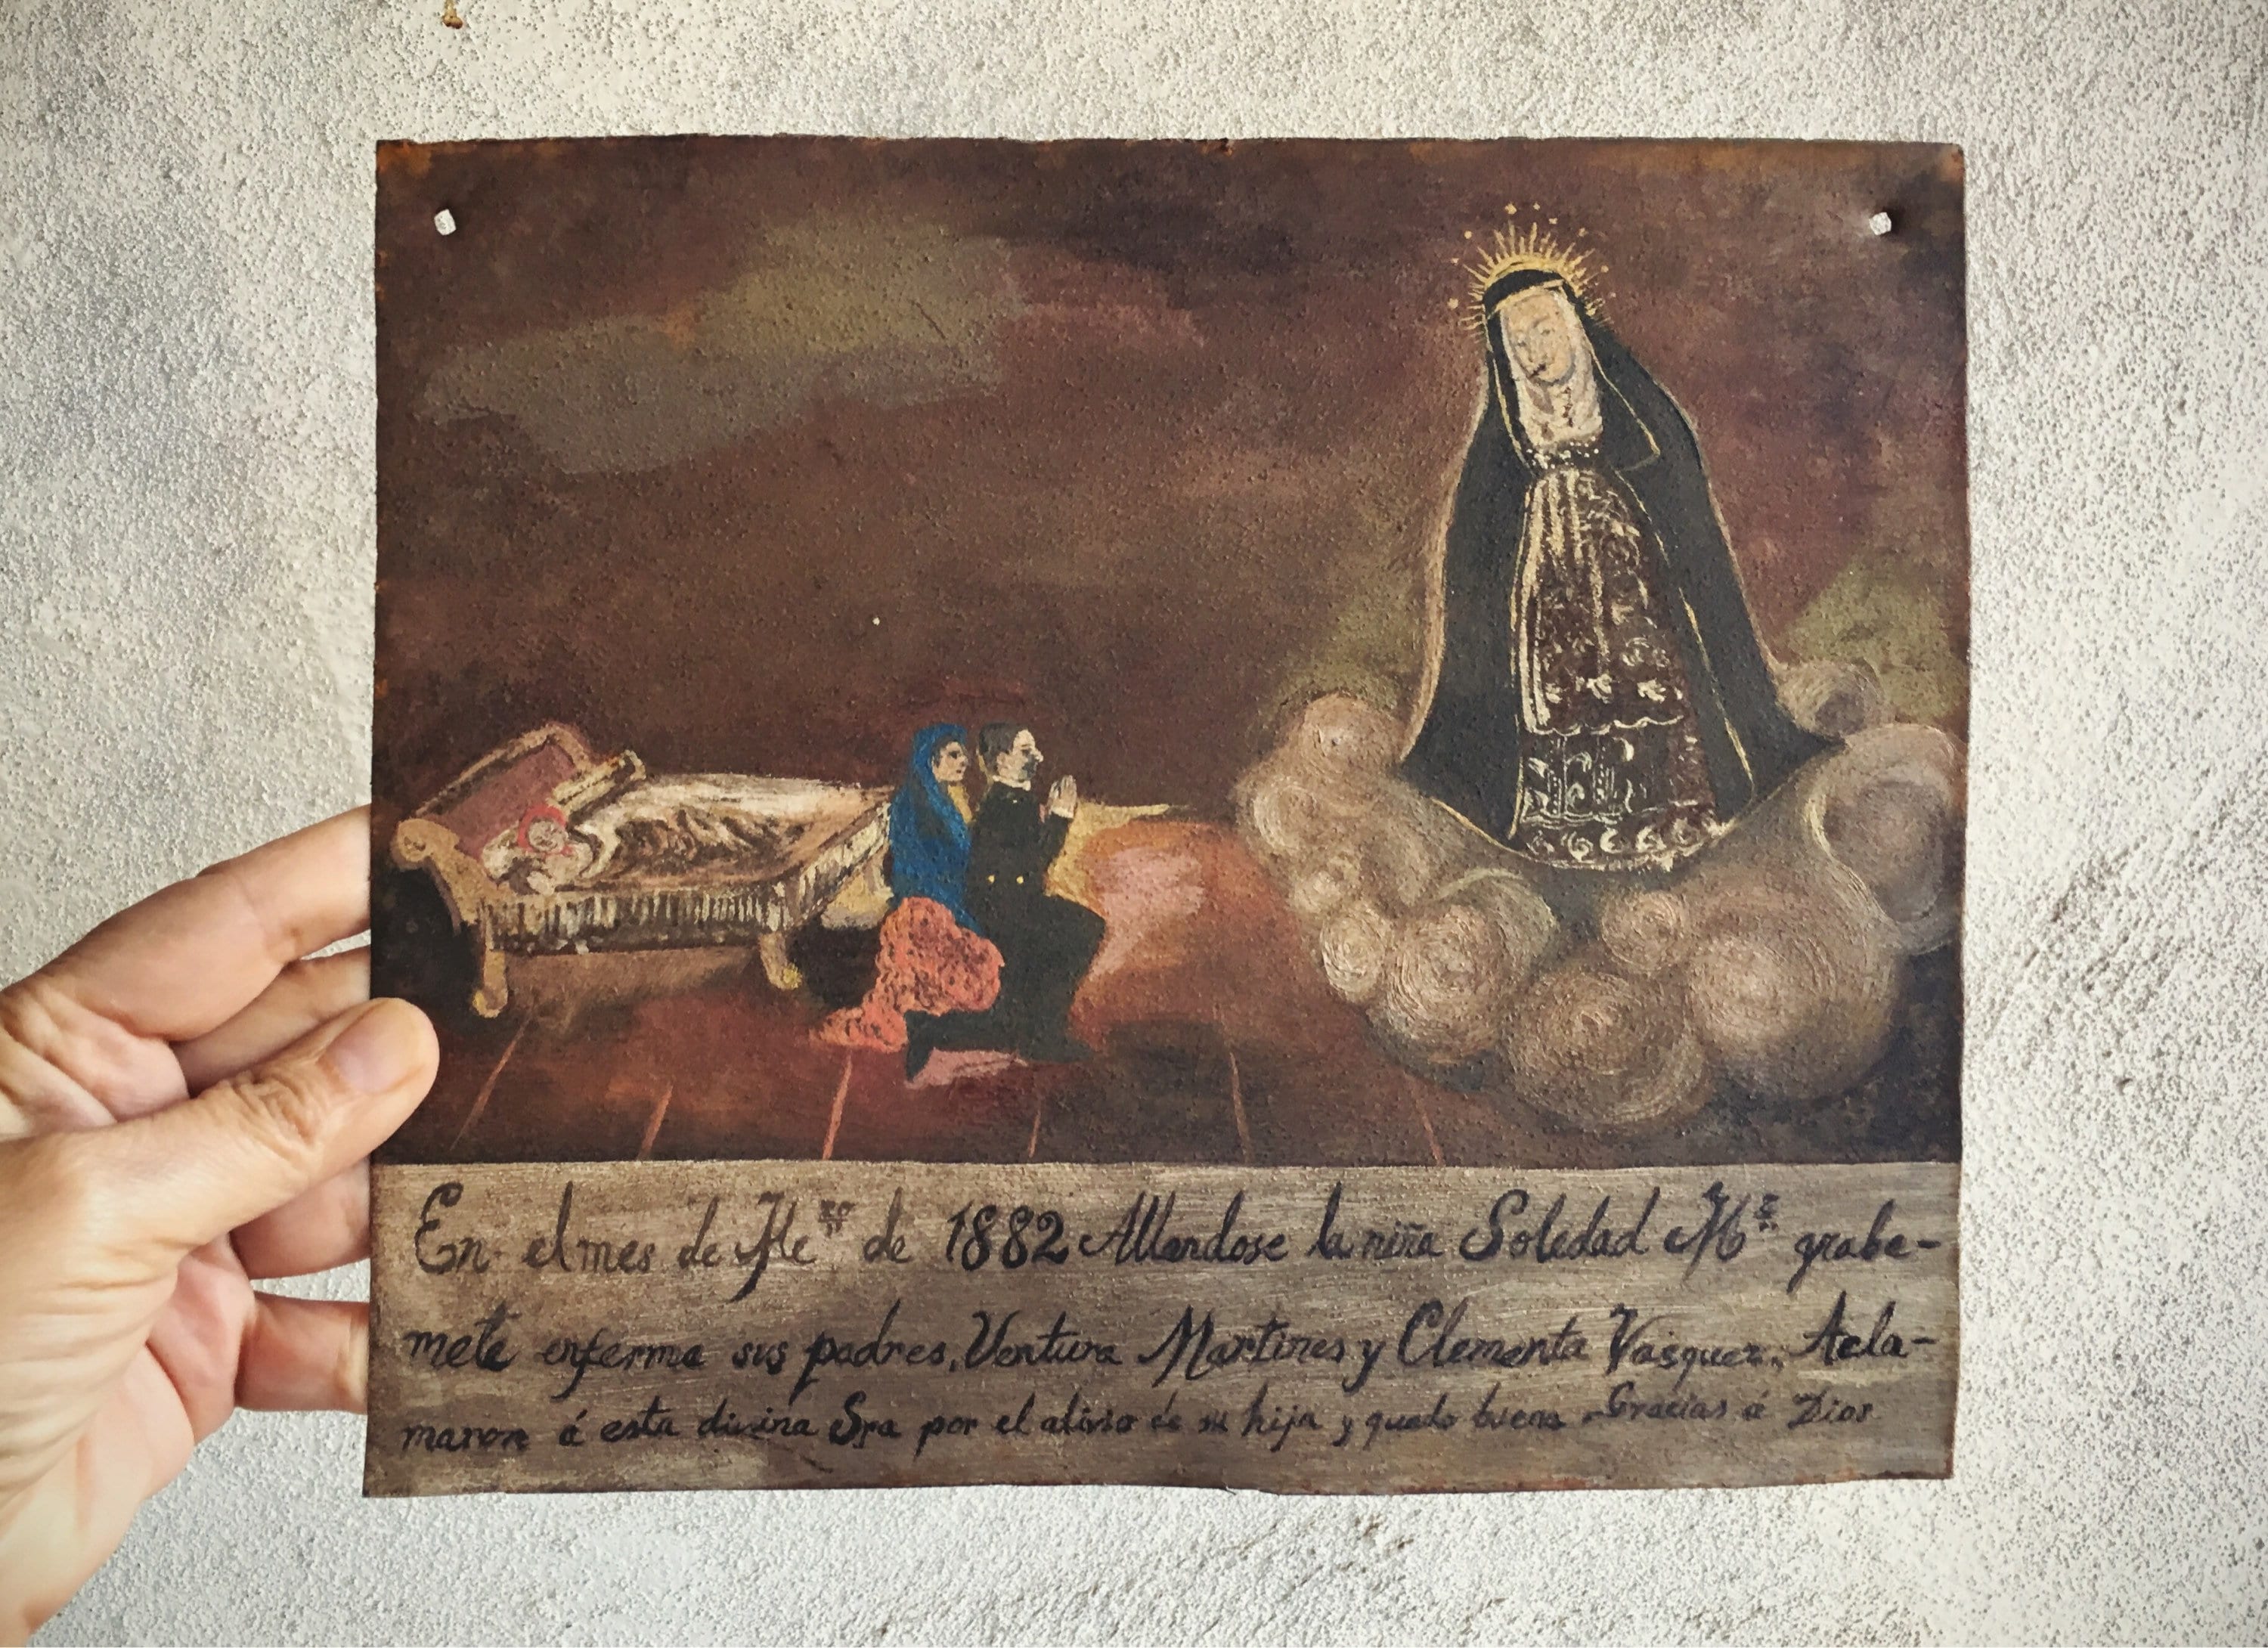 En el mes de He^ro de 1882 Allandose la niña Soledad M^z grabe-
mete enferma sus padres, Ventura Martines y Clementa Vasquez, Acla-
maron á esta divina Sra por el alivio de su hija y quedo buena - Gracias á Dios